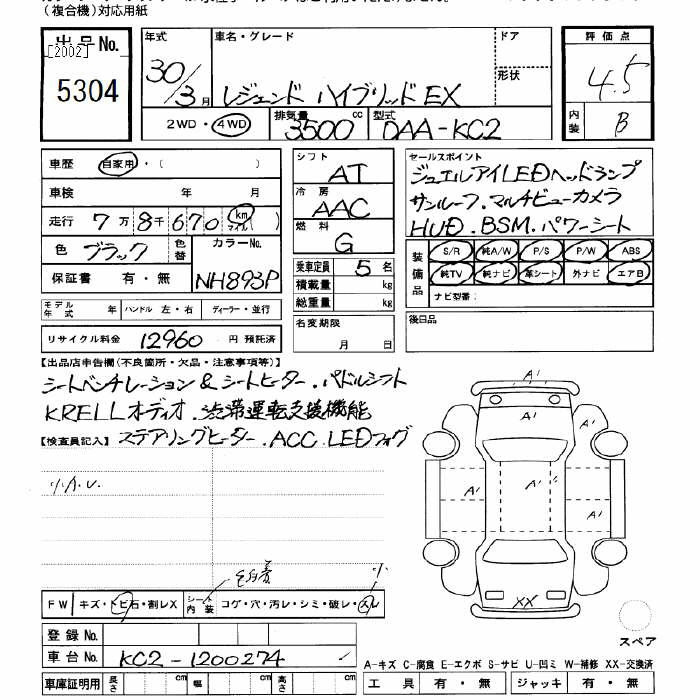 (複合機)対応用紙
出品No.
[2002]
5304
年式 車名・グレード ドア
30/3月 レジェンド ハイブリッド EX 形状
2WD・4WD 排気量 3500 cc 型式 DAA-KC2
評価点
4.5
内装 B
車歴 自家用・( )
車検 年 月
走行 7万8千670 km マイル( )
色 ブラック 色替 カラーNo. NH893P
保証書 有・無
モデル年式 年 ハンドル 左・右 ディーラー・並行
リサイクル料金 12960 円 預託済
シフト AT
冷房 AAC
燃料 G
乗車定員 5 名
積載量 kg
総重量 kg
名変期限
月 日
セールスポイント
ジュエルアイLEDヘッドランプ
サンルーフ.マルチビューカメラ
HUD.BSM.パワーシート
装備品 S/R 純A/W P/S P/W ABS
純TV 純ナビ 革シート 外ナビ エアB
ナビ型番:
後日品
【出品店申告欄(不良箇所・欠品・注意事項等)】
シートベンチレーション&シートヒーター.パドルシフト
KRELLオーディオ.渋滞運転支援機能
【検査員記入】 ステアリングヒーター.ACC.LEDフォグ
小A.U.
FW キズ・トビ石・割レX シート内装 コゲ・穴・汚レ・シミ・破レ・スレ
小
A' A' A' A' A' A' XX
スペア
登録No.
車台No. KC2-1200274
車庫証明用 長さ cm 幅 cm 高さ cm
A-キズ C-腐食 E-エクボ S-サビ U-凹ミ W-補修 XX-交換済
工具 有・無 ジャッキ 有・無